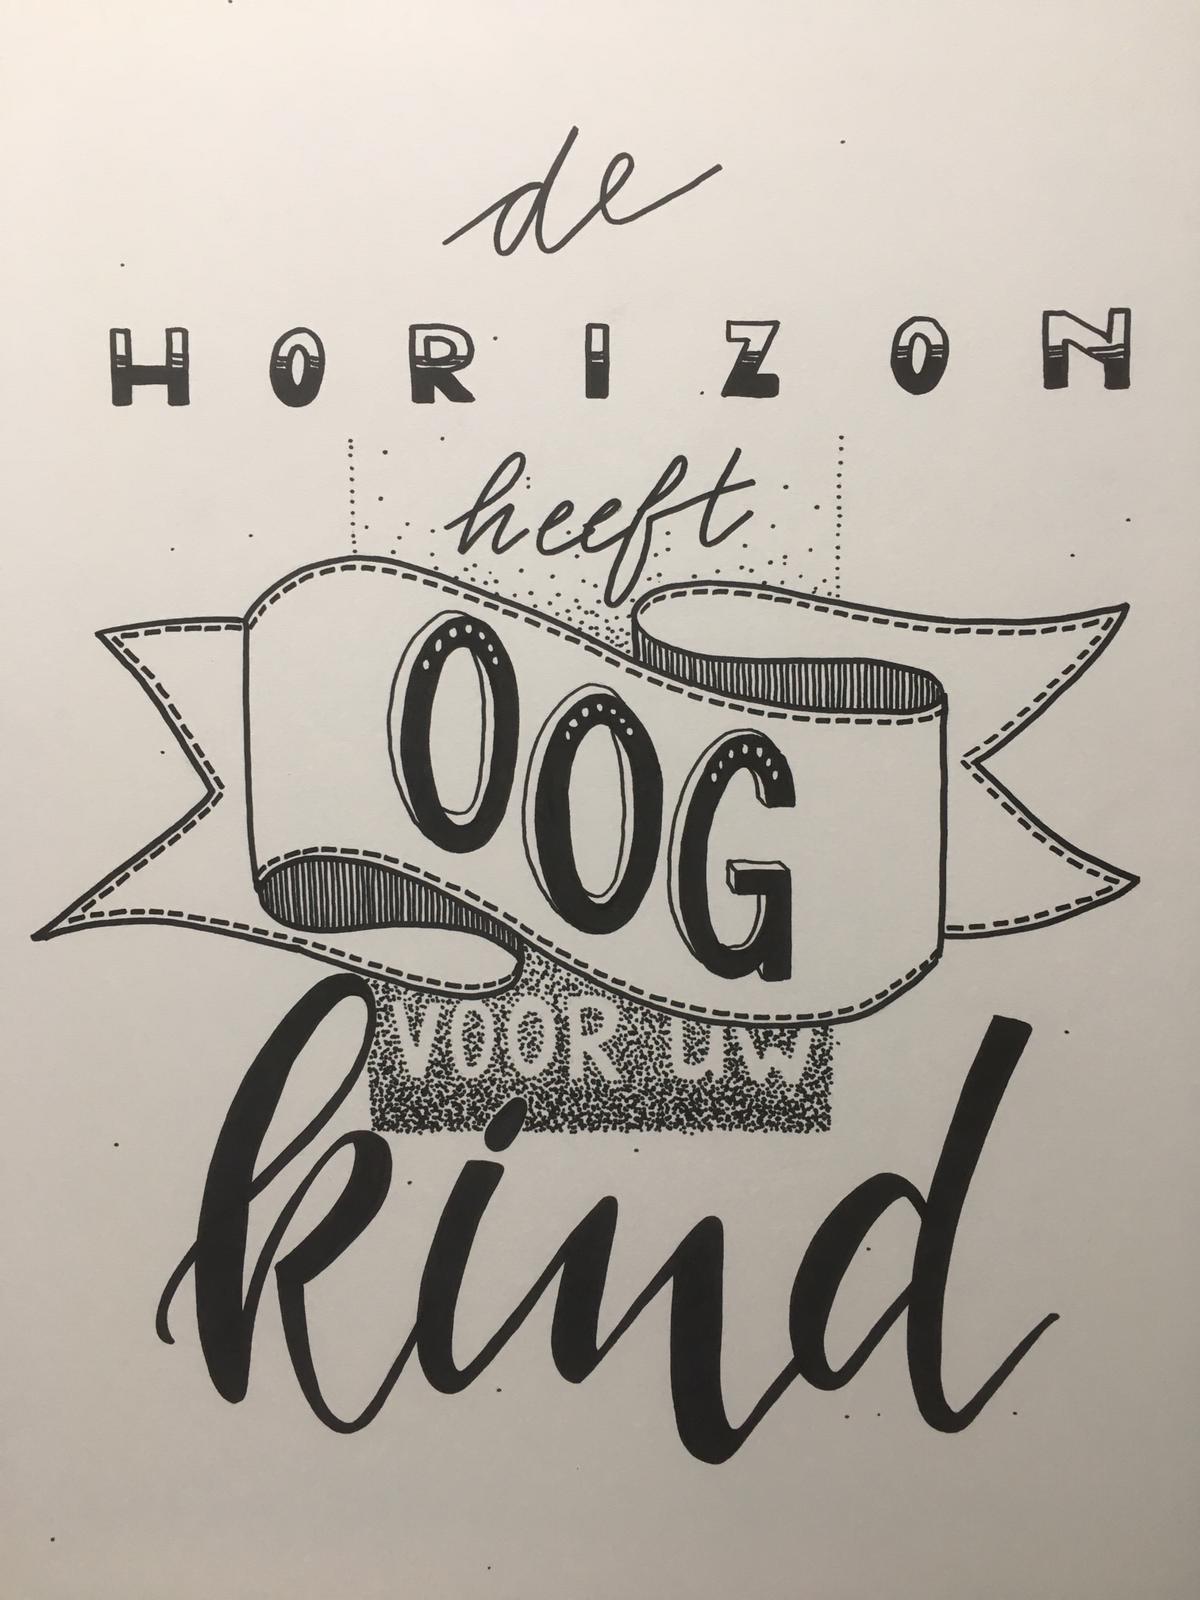 de
HORIZON
heeft
OOG
VOOR UW
kind